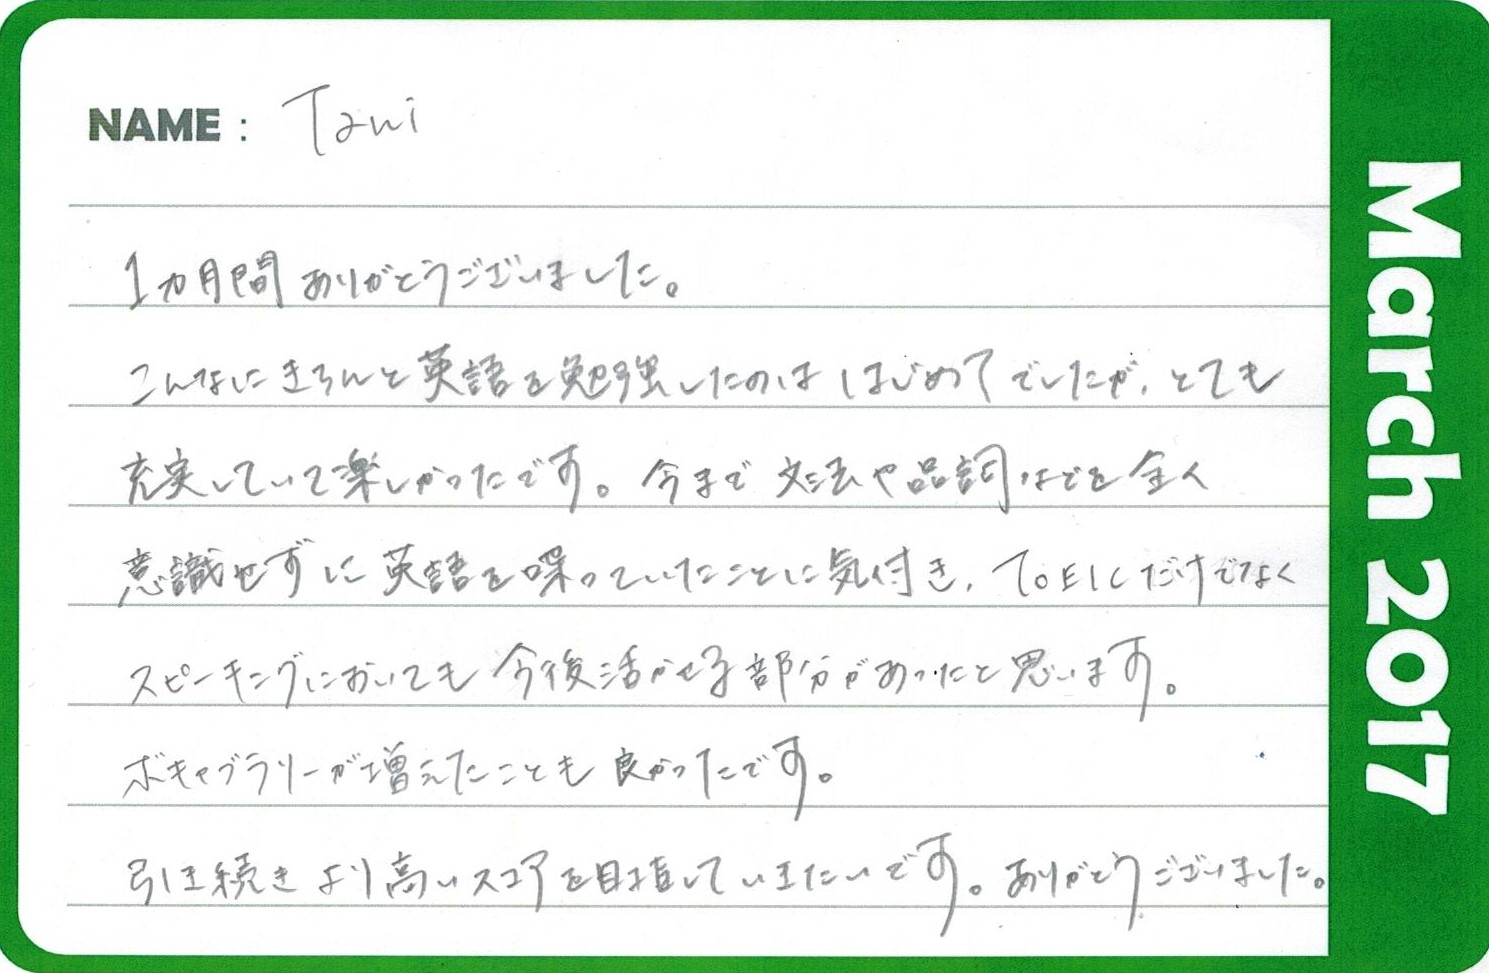 NAME : Tani
1ヵ月間ありがとうございました。
こんなにきちんと英語を勉強したのははじめてでしたが、とても
充実していて楽しかったです。今まで文法や品詞などを全く
意識せずに英語を喋っていたことに気付き、TOEICだけでなく
スピーキングにおいても今後活かせる部分があったと思います。
ボキャブラリーが増えたことも良かったです。
引き続きより高いスコアを目指していきたいです。ありがとうございました。
March 2017